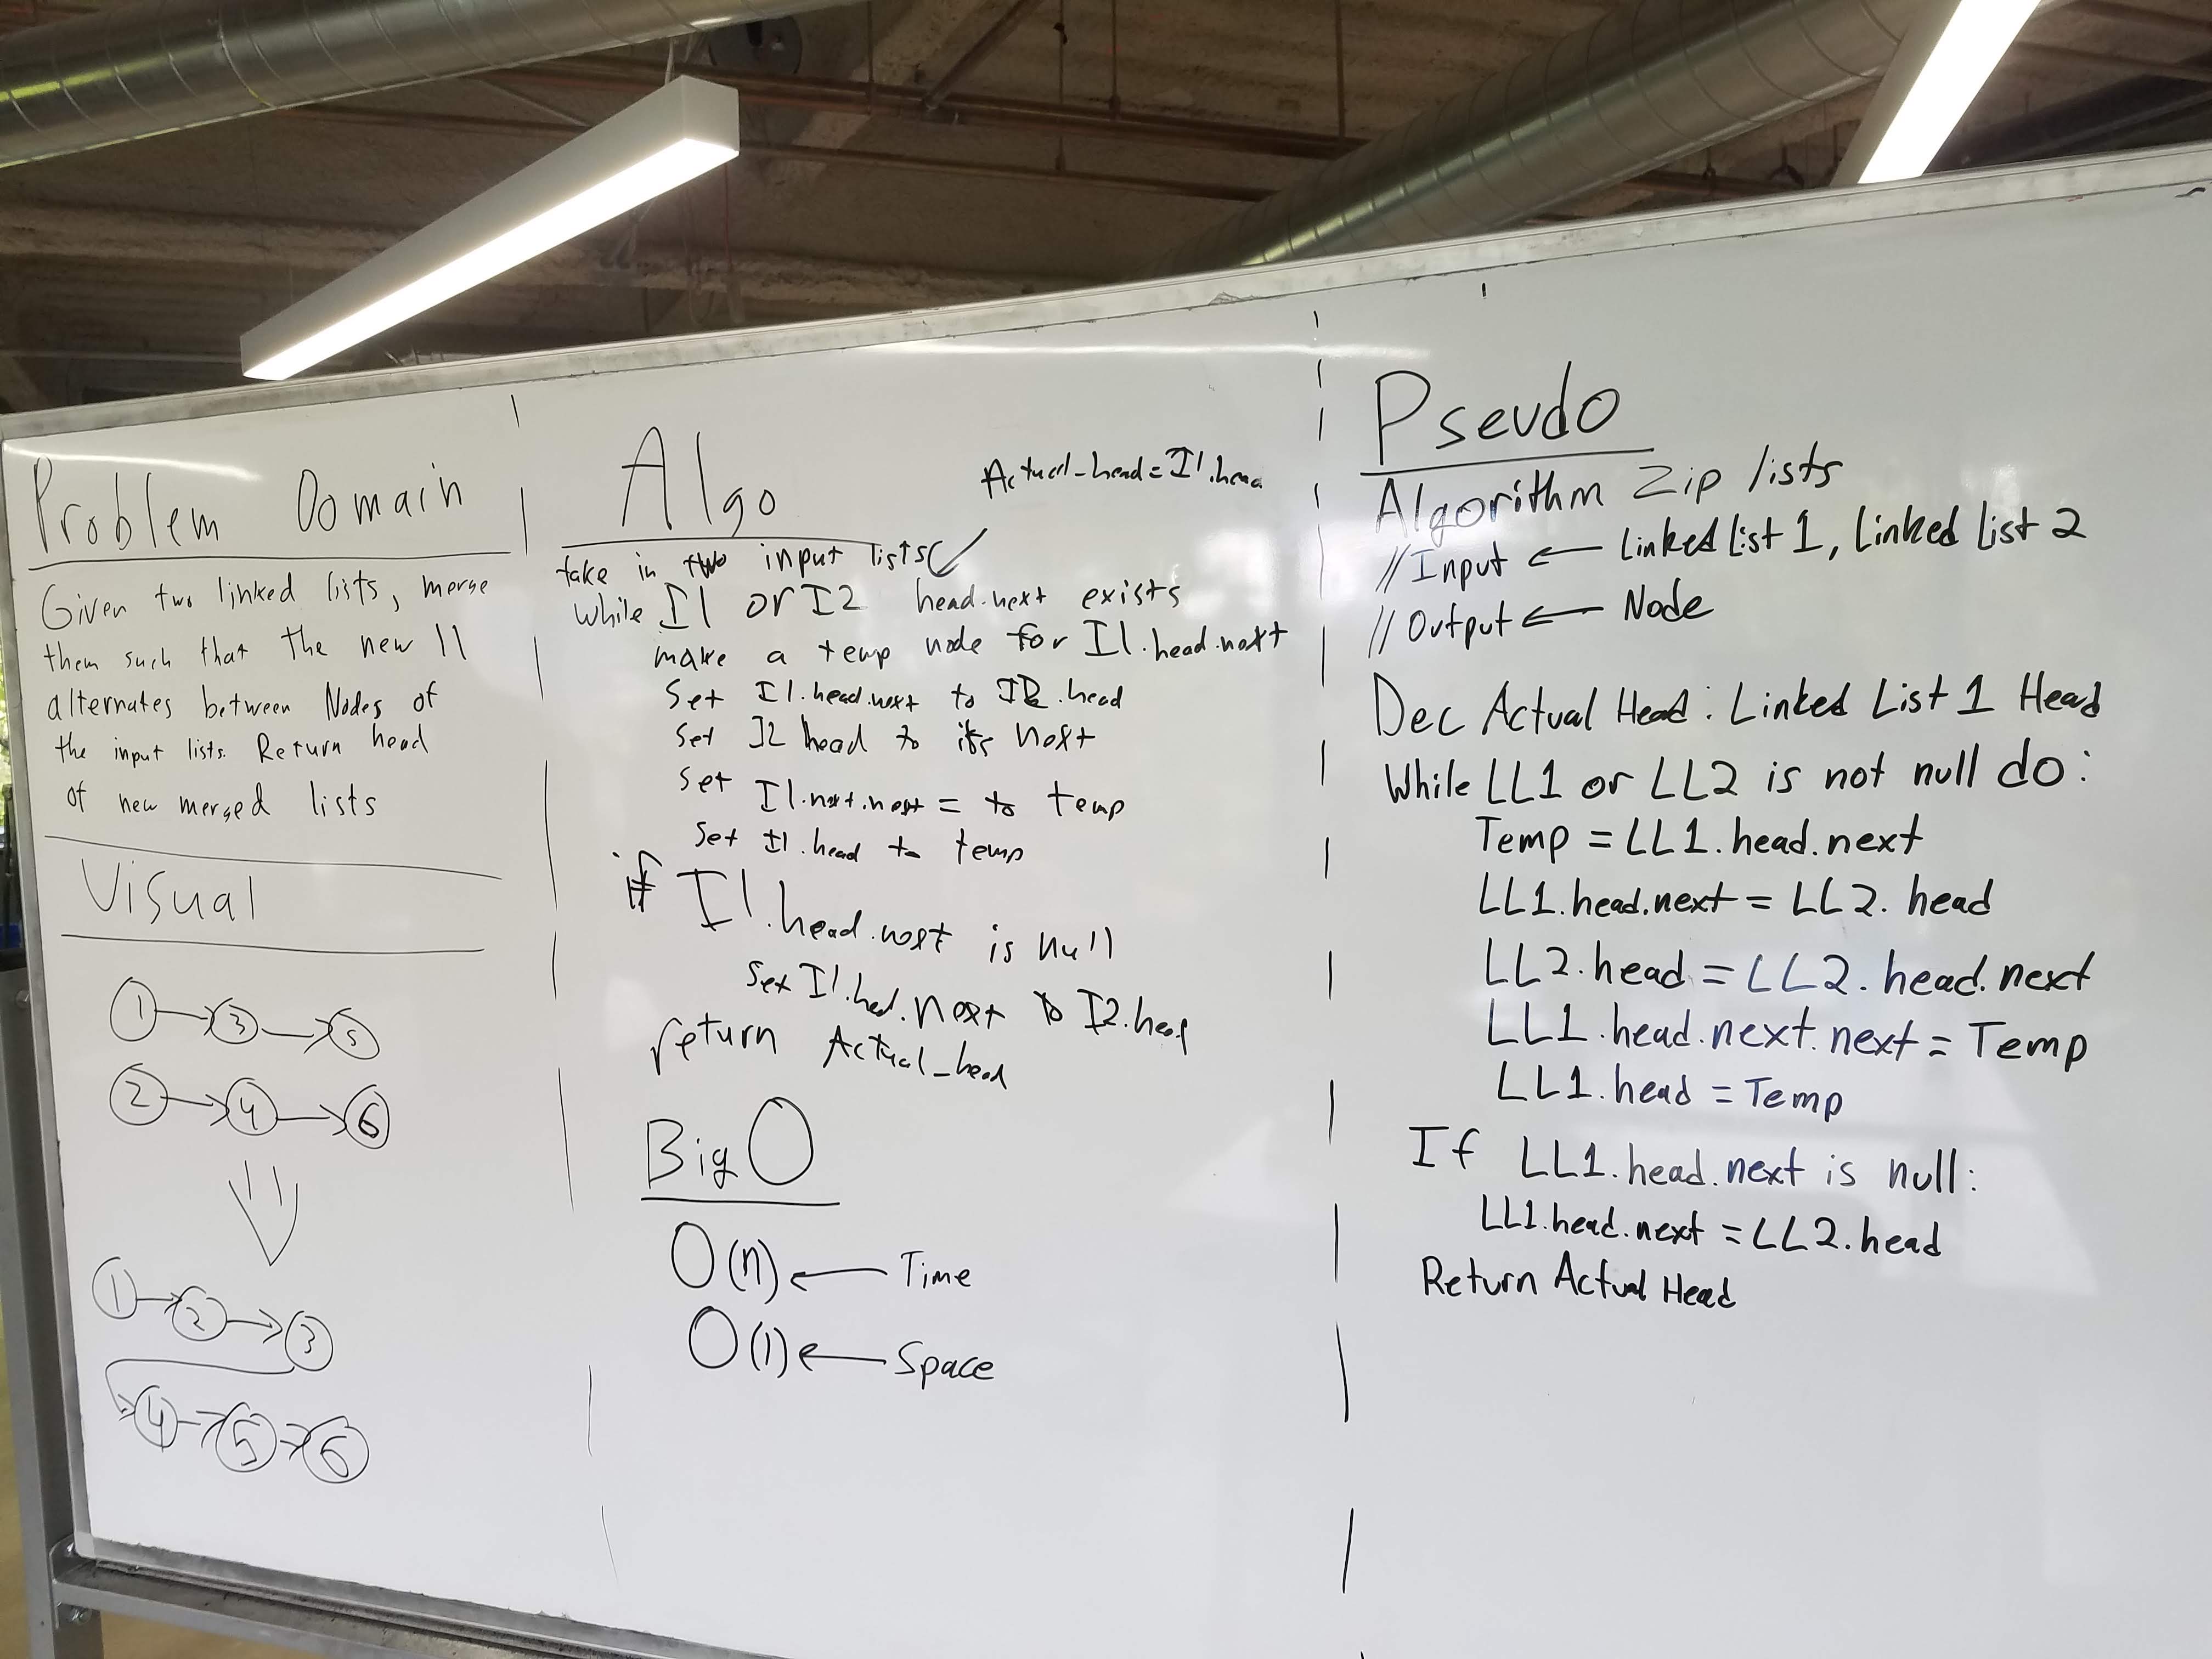 Problem Domain
Given two linked lists, merge
them such that the new ll
alternates between Nodes of
the input lists. Return head
of new merged lists
Visual
1 → 3 → 5
2 → 4 → 6
1 → 2 → 3
→ 4 → 5 → 6
Algo
Actual_head = I1.head
take in two input lists
while I1 or I2 head.next exists
make a temp node for I1.head.next
Set I1.head.next to I2.head
Set I2 head to its next
Set I1.next.next = to temp
Set I1.head to temp
if I1.head.next is null
Set I1.hed.next to I2.head
return Actual_head
Big O
O(n) ← Time
O(1) ← Space
Pseudo
Algorithm Zip lists
// Input ← Linked List 1, Linked List 2
// Output ← Node
Dec Actual Head : Linked List 1 Head
While LL1 or LL2 is not null do :
Temp = LL1.head.next
LL1.head.next = LL2.head
LL2.head = LL2.head.next
LL1.head.next.next = Temp
LL1.head = Temp
If LL1.head.next is null:
LL1.head.next = LL2.head
Return Actual Head